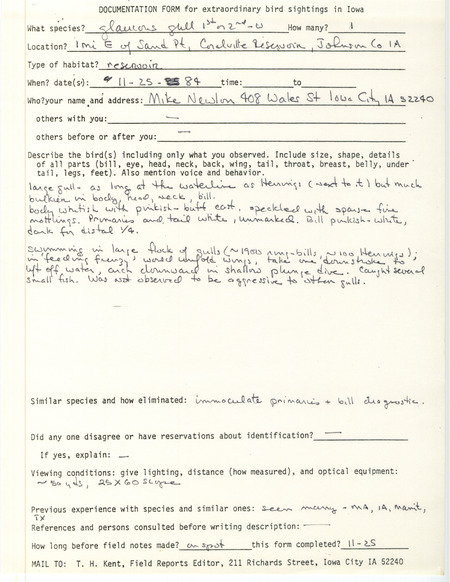 DOCUMENTATION FORM for extraordinary bird sightings in Iowa
What species? glaucous gull 1st or 2nd-w How many? 1
Location? 1 mi E of Sand Pt, Coralville Reservoir, Johnson Co IA
Type of habitat? reservoir
When? date(s): 11-25- 84 time: to
Who?your name and address: Mike Newlon 408 Wales St Iowa City, IA 52240
others with you: —
others before or after you: —
Describe the bird(s) including only what you observed. Include size, shape, details
of all parts (bill, eye, head, neck, back, wing, tail, throat, breast, belly, under
tail, legs, feet). Also mention voice and behavior.
large gull - as long at the waterline as Herrings (next to it) but much
bulkier in body, head, neck, bill.
body whitish with pinkish-buff cast, speckled with sparse fine
mottlings. Primaries and tail white, unmarked. Bill pinkish-white,
dark for distal 1/4.
Swimming in large flock of gulls (~1900 ring-bills, ~100 Herrings);
in 'feeding frenzy' would unfold wings, take one downstroke to
lift off water, arch downward in shallow plunge dive. Caught several
small fish. Was not observed to be aggressive to other gulls.
Similar species and how eliminated: immaculate primaries + bill diagnostic.
Did any one disagree or have reservations about identification? —
If yes, explain: —
Viewing conditions: give lighting, distance (how measured), and optical equipment:
~ 80 yds, 25x60 scope
Previous experience with species and similar ones: seen many - MA, IA, Manit,
TX
References and persons consulted before writing description: —
How long before field notes made? on spot this form completed? 11-25
MAIL TO: T. H. Kent, Field Reports Editor, 211 Richards Street, Iowa City IA 52240